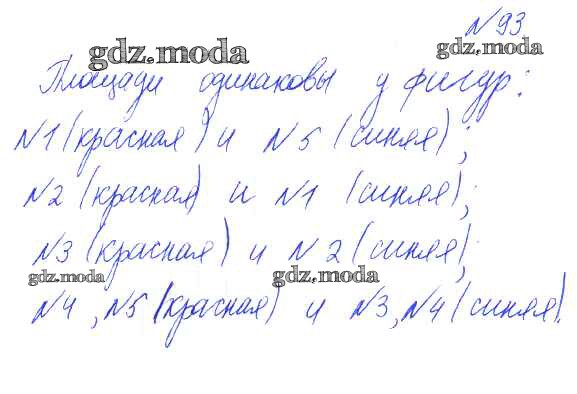 №93
gdz.moda
gdz.moda
Площади одинаковы у фигур:
№1 (красная) и №5 (синяя);
№2 (красная) и №1 (синяя);
№3 (красная) и №2 (синяя);
gdz.moda
gdz.moda
№4, №5 (красная) и №3, №4 (синяя).